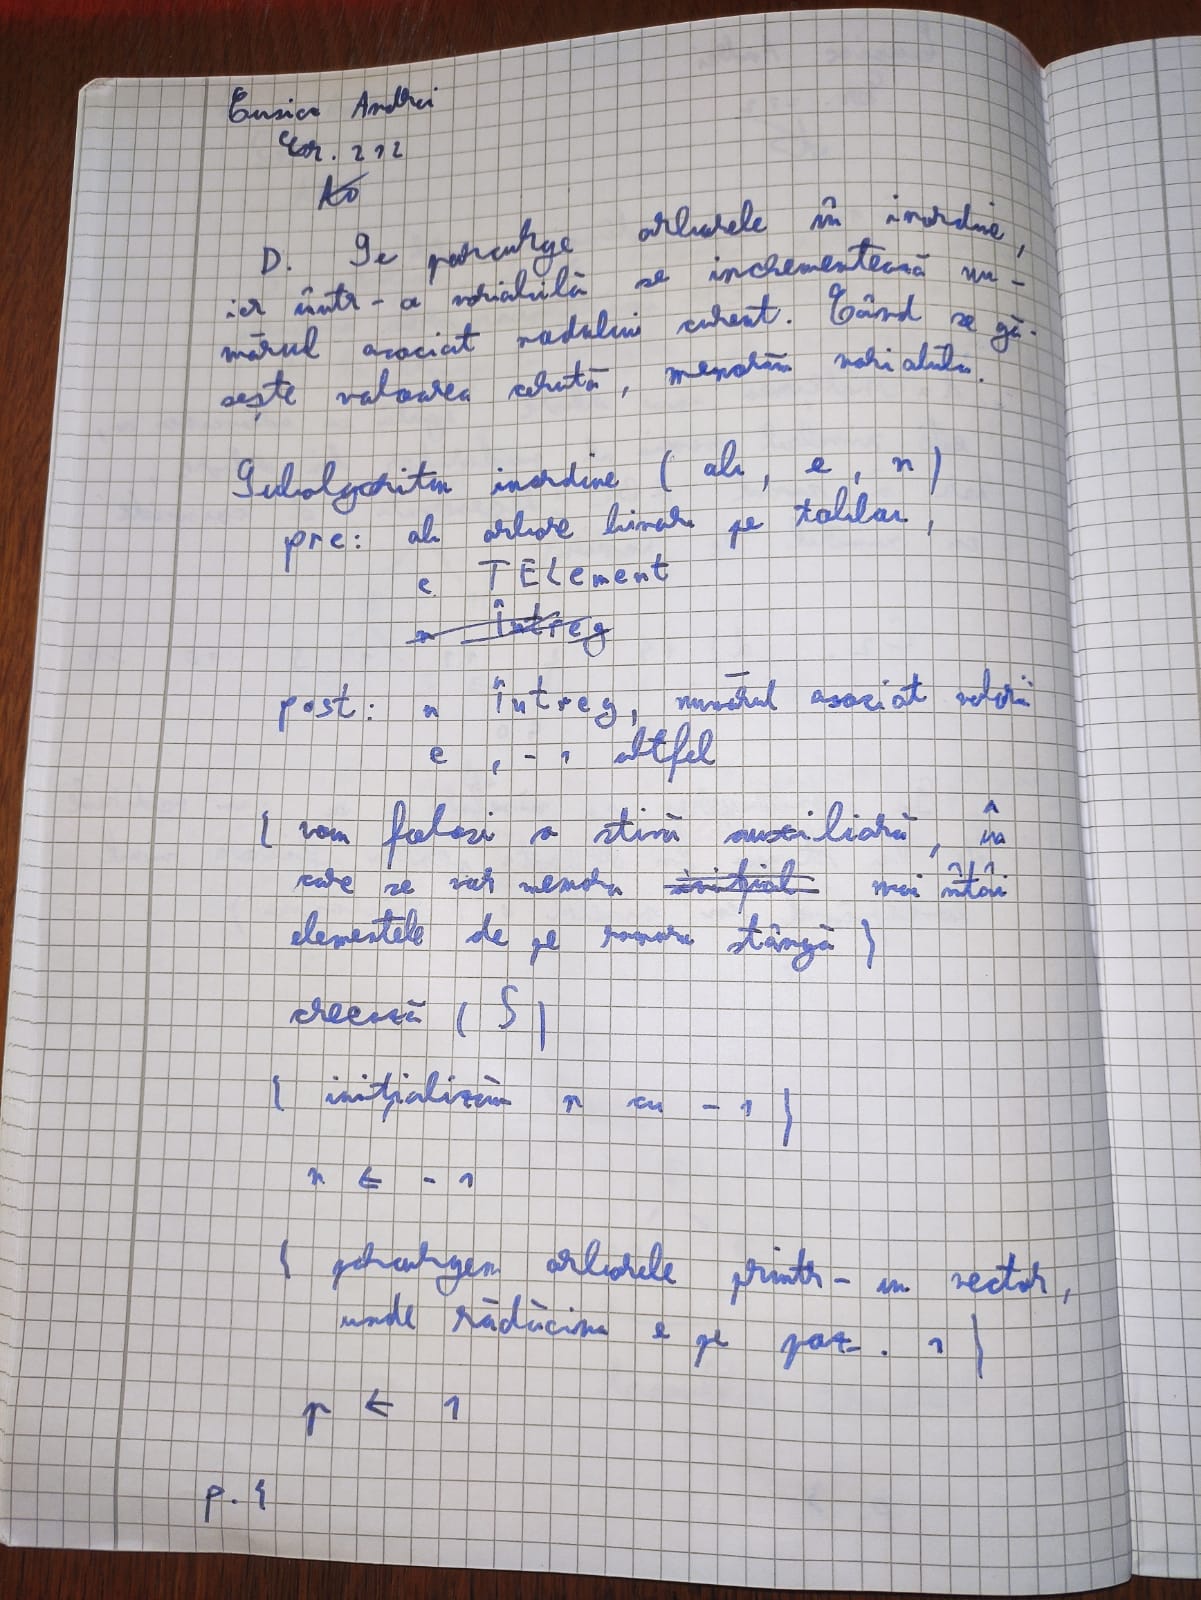 Andrei
Gr. 212
D. Se parcurge arborele în inordine,
iar într-o variabilă se incrementează nu-
mărul asociat nodului curent. Când se gă-
sește valoarea cerută, menorăm variabila.
Subalgoritm inordine (ab, e, n)
pre: ab arbore binar pe tablou,
e TElement
n Întreg
post: n Întreg, numărul asociat valorii
e, -1 altfel
{ vom folosi o stivă auxiliară, în
care se vor memora inițial mai întâi
elementele de pe ramura stângă }
crează (S)
{ inițializăm n cu -1 }
n ← -1
{ parcurgem arborele printr-un vector,
unde rădăcina e pe poz. 1 }
p ← 1